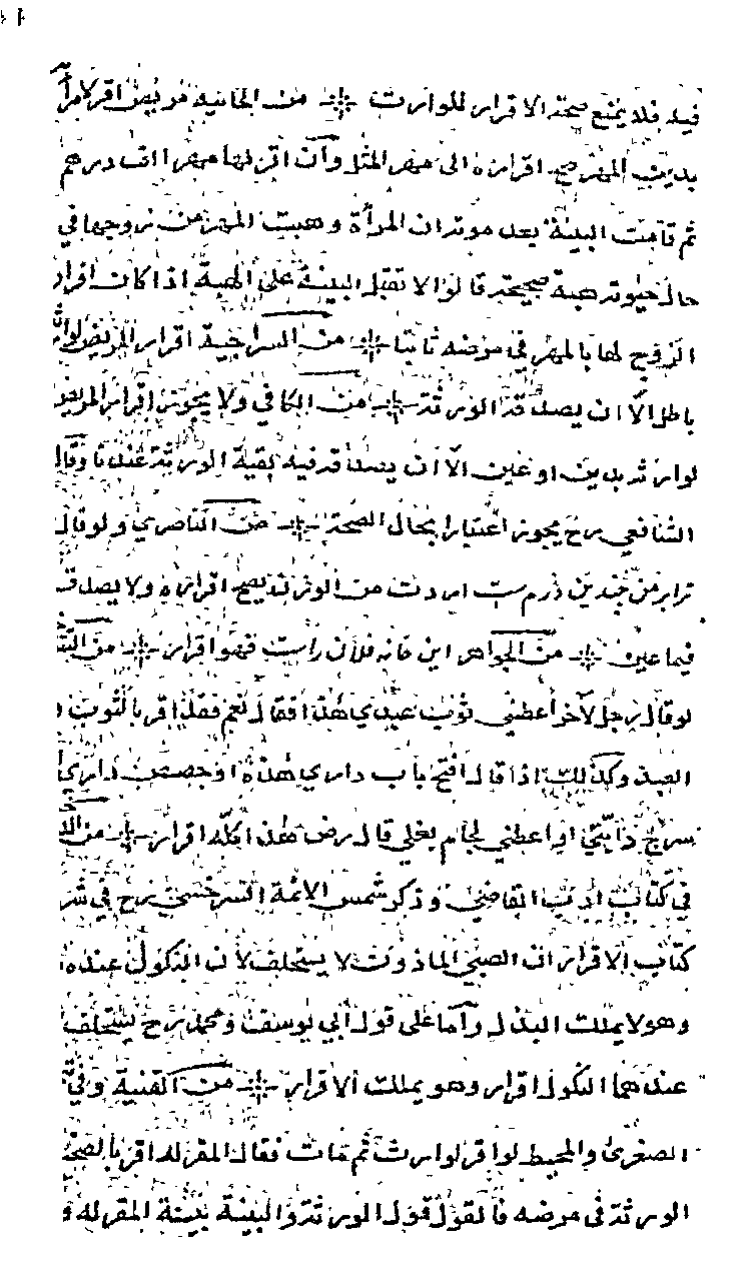 فيه فلا يمنع صحة الاقرار للوارث من الخانيه مريض اقر لامرأ
بدين المهر صح اقراره الى مهر المثل وان اقر لها مهرا الف درهم
ثم قامت البينة بعد موته ان المرأة وهبت المهر من زوجها في
حال حيوته هبة صحيحة قالوا لا تقبل البينة على الهبة اذا كان اقرار
الزوج لها بالمهر في مرضه ثابتا من السراجية اقرار المريض لوا
باطل الا ان يصدقه الورثة من الكافي ولا يجوز اقرار المريض
لوارثه بدين او عين الا ان يصدقه فيه بقية الورثة عندنا وقال
الشافعي رح يجوز اعتبارا بحال الصحة من الناصري ولو قال
ترا بر من چندين درم ست اردت من الورثة يصح اقراره ولا يصدق
فيما عين من الجواهر اين خانه فلان راست فهو اقرار من
لو قال رجل لآخر اعطني ثوب عبدي هذا فقال نعم فقد اقر بالثوب و
العبد وكذلك اذا قال افتح باب داري هذه او جصص داري
سرج دابتي او اعطني لجام بغلي قال رض هذا كله اقرار من
في كتاب ادب القاضي وذكر شمس الائمة السرخسي رح في شر
كتاب الاقرار ان الصبي الماذون لا يستحلف لان النكول عنده
وهو لا يملك البذل واما على قول ابي يوسف ومحمد رح يستحلف
عندهما النكول اقرار وهو يملك الاقرار من القنية وفي
الصغرى والمحيط لو اقر لوارث ثم مات فقال المقر له اقر بالصحة
الورثة في مرضه فالقول قول الورثة والبينة بينة المقر له و